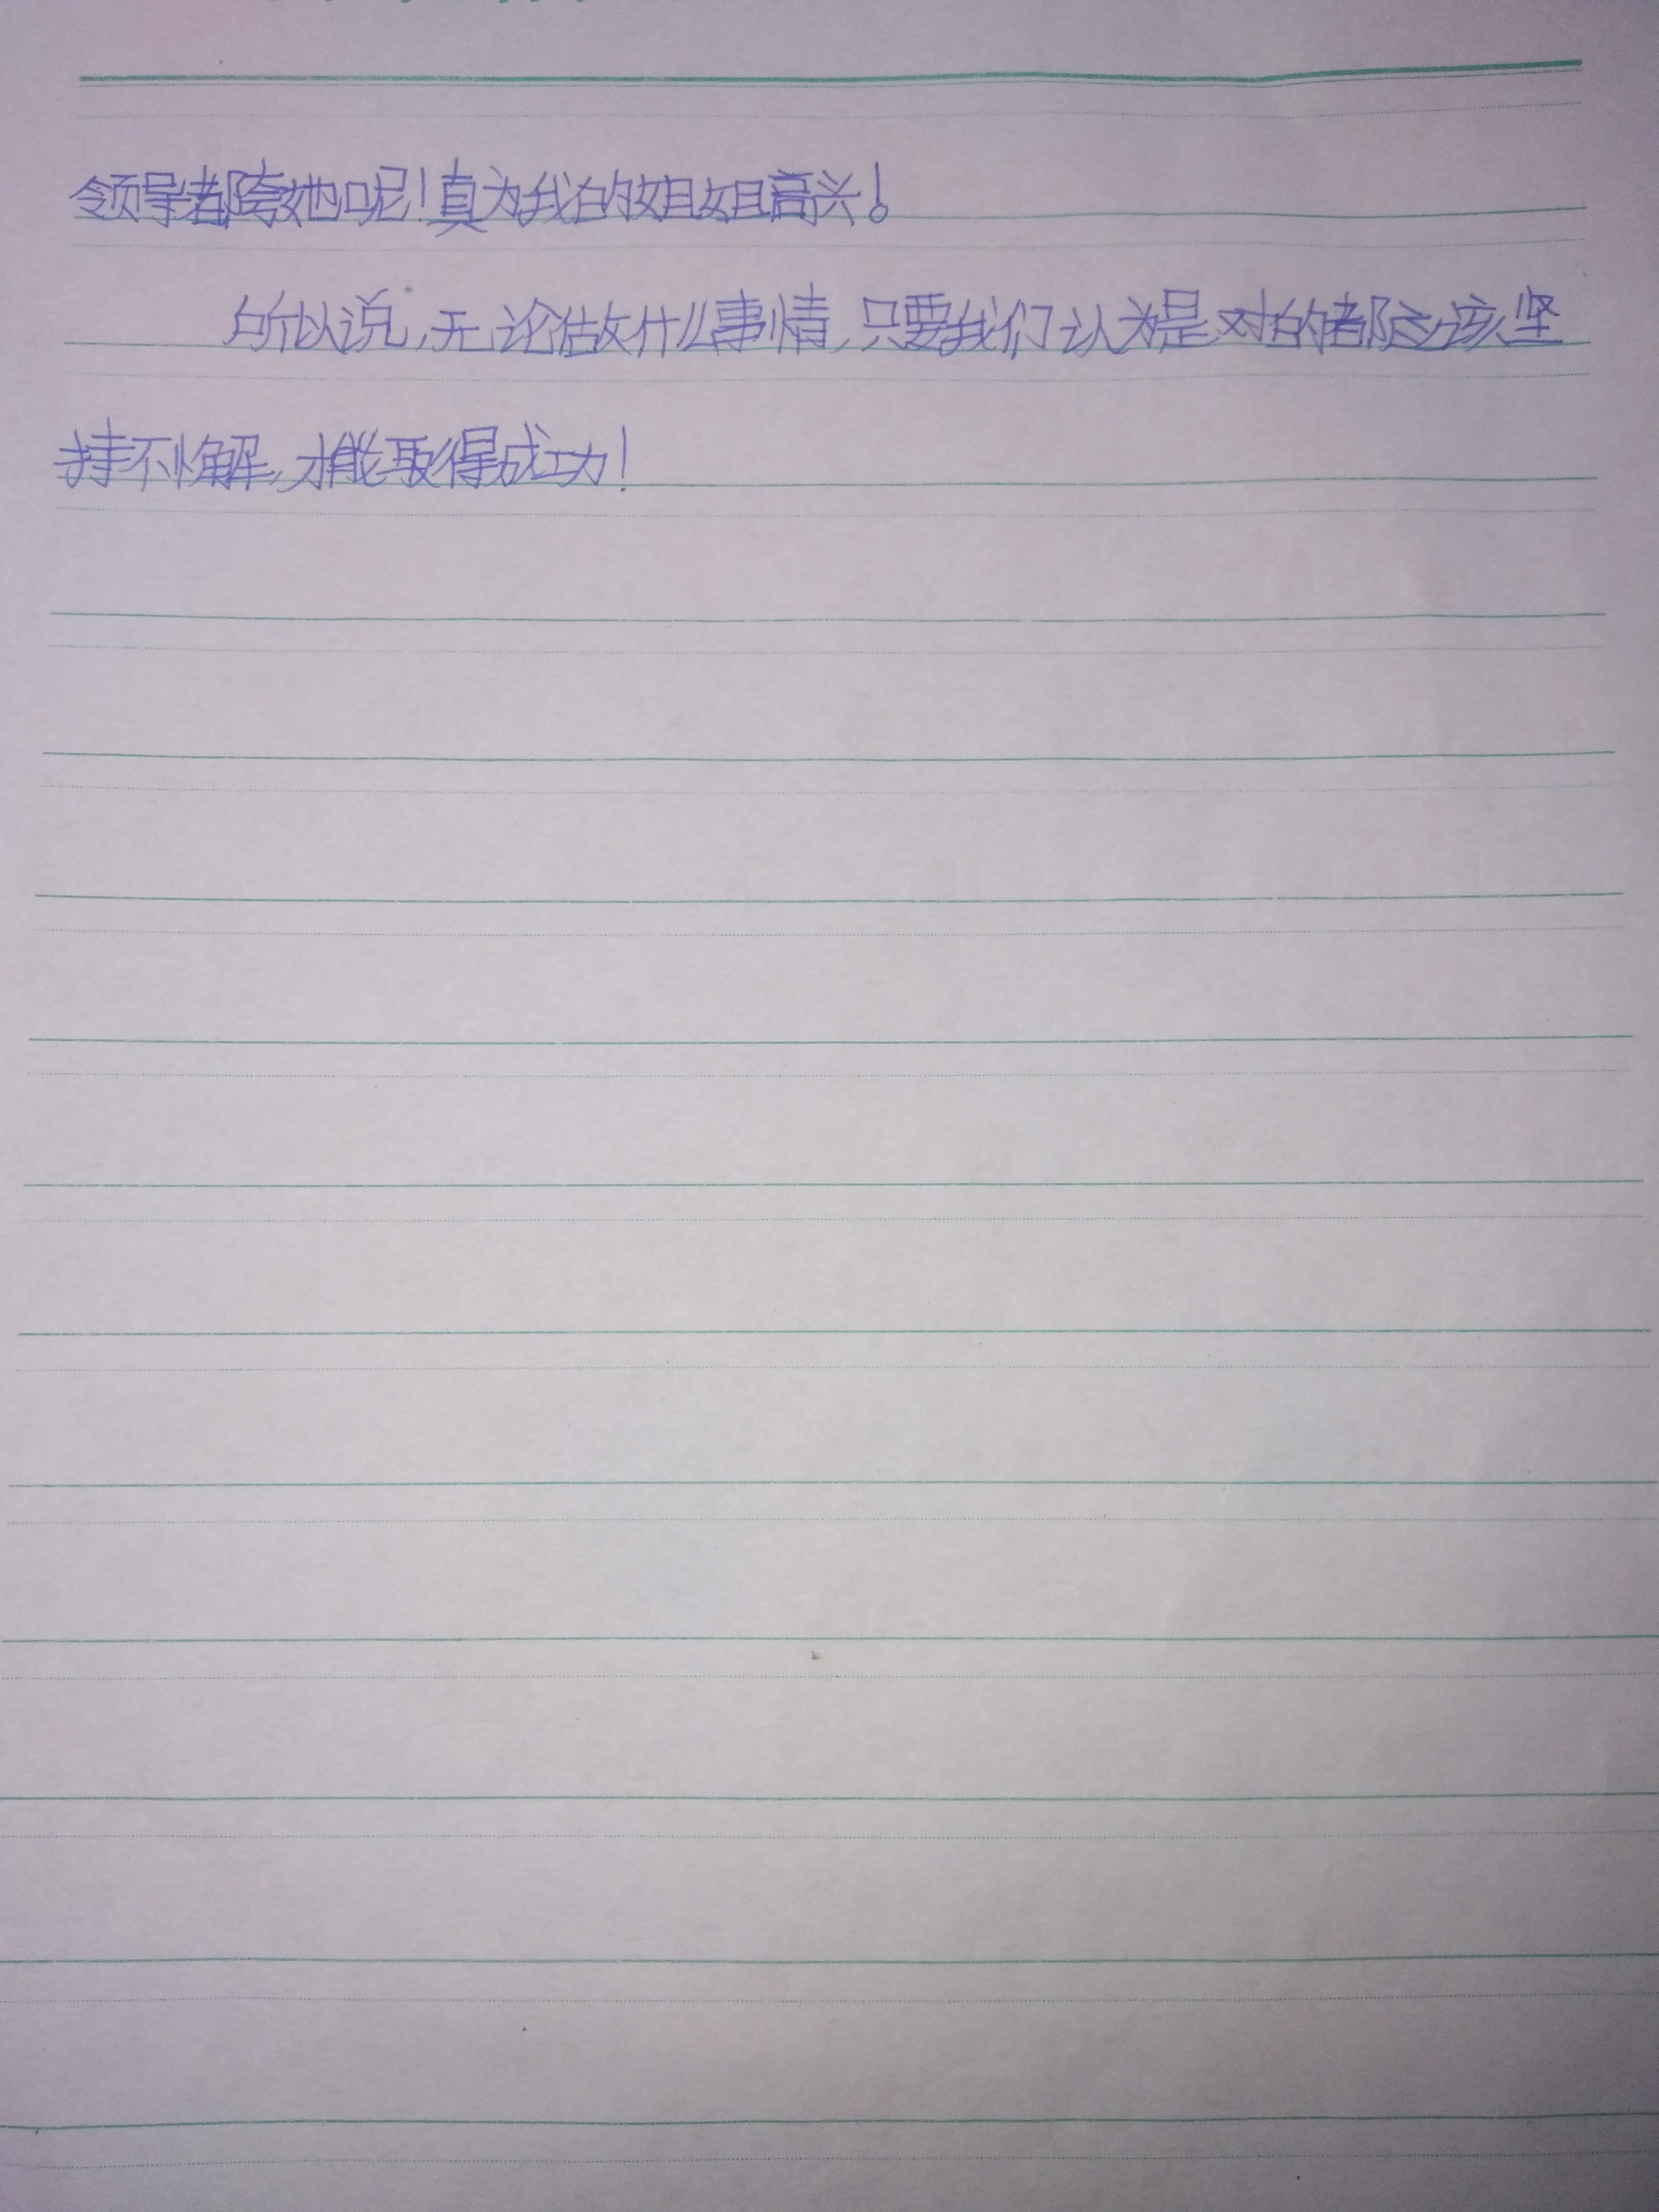 领导都夸她呢！真为我的姐姐高兴！
所以说，无论做什么事情，只要我们认为是对的都应该坚
持不懈，才能取得成功！